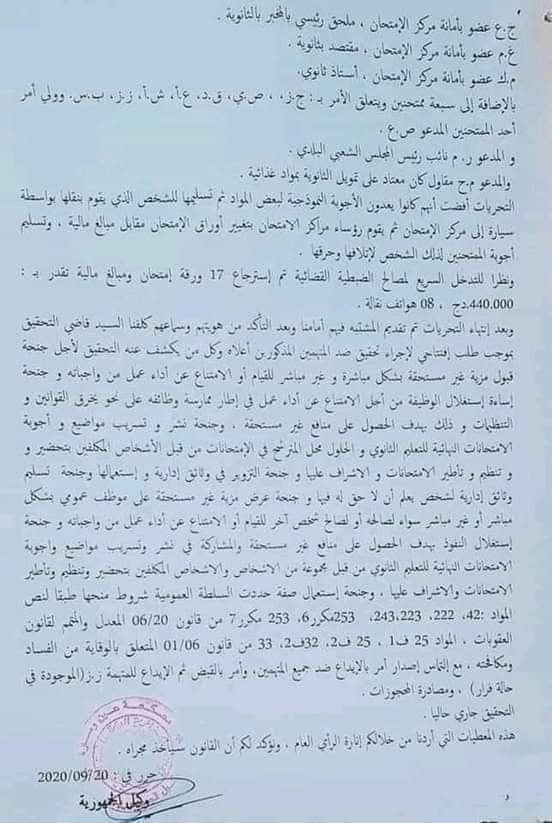 ج.ع عضو بأمانة مركز الإمتحان ، ملحق رئيسي بالمخبر بالثانوية .
غ.م عضو بأمانة مركز الإمتحان ، مقتصد بثانوية .
م.ك عضو بأمانة مركز الإمتحان ، أستاذ ثانوي.
بالإضافة إلى سبعة ممتحنين ويتعلق الأمر بـ : ج.ز. ، ص.ي، ق.د، ع.أ، ش.أ، ز.ز، ب.س. وولي أمر
أحد الممتحنين المدعو ص.ع .
و المدعو ر. م نائب رئيس المجلس الشعبي البلدي .
والمدعو م.ح مقاول كان معتاد على تمويل الثانوية بمواد غذائية .
التحريات أفضت أنهم كانوا يعدون الأجوبة النموذجية لبعض المواد ثم تسليمها للشخص الذي يقوم بنقلها بواسطة
سيارة إلى مركز الإمتحان ثم يقوم رؤساء مراكز الامتحان بتغيير أوراق الإمتحان مقابل مبالغ مالية ، وتسليم
أجوبة الممتحنين لذلك الشخص لإتلافها وحرقها .
ونظرا للتدخل السريع لمصالح الضبطية القضائية تم إسترجاع 17 ورقة إمتحان ومبالغ مالية تقدر بـ :
440.000.دج ، 08 هواتف نقالة .
وبعد إنتهاء التحريات تم تقديم المشتبه فيهم أمامنا وبعد التأكد من هويتهم وسماعهم كلفنا السيد قاضي التحقيق
بموجب طلب إفتتاحي لإجراء تحقيق ضد المتهمين المذكورين أعلاه وكل من يكشف عنه التحقيق لأجل جنحة
قبول مزية غير مستحقة بشكل مباشرة و غير مباشر للقيام أو الامتناع عن أداء عمل من واجباته و جنحة
إساءة إستغلال الوظيفة من أجل الامتناع عن أداء عمل في إطار ممارسة وظائفه على نحو يخرق القوانين و
التنظيمات و ذلك بهدف الحصول على منافع غير مستحقة ، وجنحة نشر و تسريب مواضيع و أجوبة
الامتحانات النهائية للتعليم الثانوي و الحلول محل المترشح في الإمتحانات من قبل الأشخاص المكلفين بتحضير و
و تنظيم و تأطير الامتحانات و الاشراف عليها و جنحة التزوير في وثائق إدارية و إستعمالها وجنحة تسليم
وثائق إدارية لشخص يعلم أن لا حق له فيها و جنحة عرض مزية غير مستحقة على موظف عمومي بشكل
مباشر أو غير مباشر سواء لصالحه أو لصالح شخص آخر للقيام أو الامتناع عن أداء عمل من واجباته و جنحة
إستغلال النفوذ بهدف الحصول على منافع غير مستحقة والمشاركة في نشر وتسريب مواضيع واجوبة
الامتحانات النهائية للتعليم الثانوي من قبل مجموعة من الاشخاص والاشخاص المكلفين بتحضير وتنظيم وتأطير
الامتحانات والاشراف عليها ، وجنحة إستعمال صفة حددت السلطة العمومية شروط منحها طبقا لنص
المواد :42، 222، 243،223، 253مكرر6، 253 مكرر7 من قانون 06/20 المعدل والمتمم لقانون
العقوبات ، المواد 25 ف1 ، 25 ف2، 32ف2، 33 من قانون 01/06 المتعلق بالوقاية من الفساد
ومكافحته ، مع إلتماس إصدار أمر بالإيداع ضد جميع المتهمين، وأمر بالقبض ثم الإيداع للمتهمة ز.ز(الموجودة في
حالة فرار) ، ومصادرة المحجوزات .
التحقيق جاري حاليا .
هذه المعطيات التي أردنا من خلالكم إنارة الرأي العام ، ونؤكد لكم أن القانون سيأخذ مجراه .
حرر في : 2020/09/20
وكيل الجمهورية